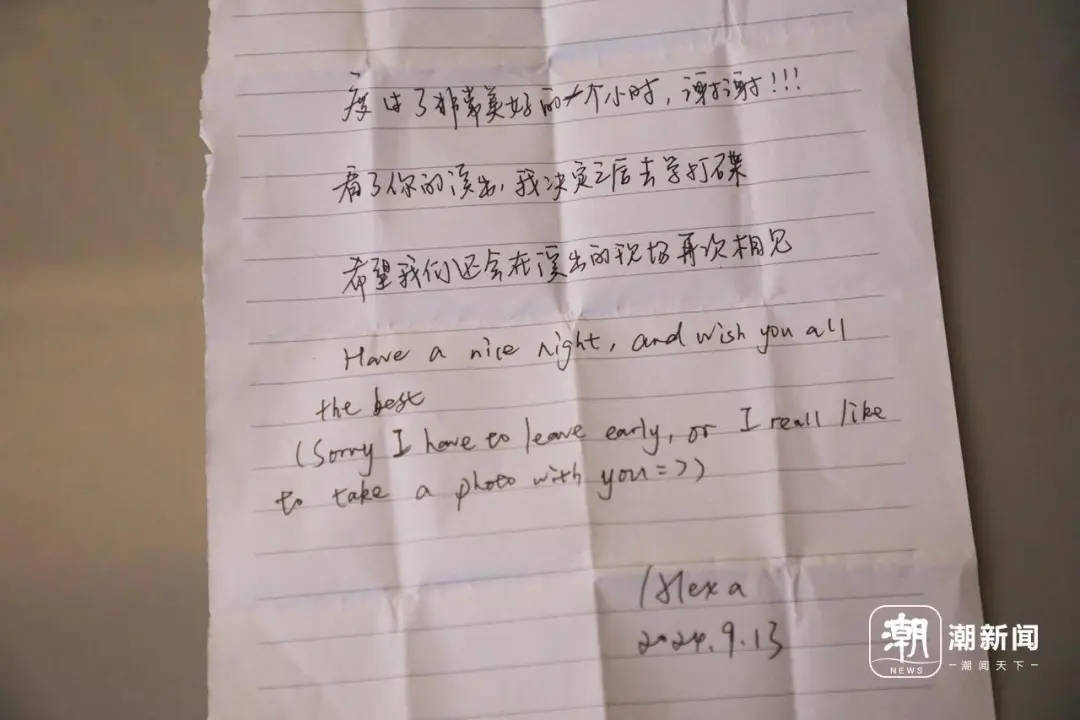 度过了非常美好的一个小时，谢谢!!!
看了你的演出，我决定之后去学打碟
希望我们还会在演出的现场再次相见
Have a nice night, and wish you all
the best
(Sorry I have to leave early, or I reall like
to take a photo with you=))
Alexa
2024.9.13
潮 潮新闻
NEWS 潮闻天下